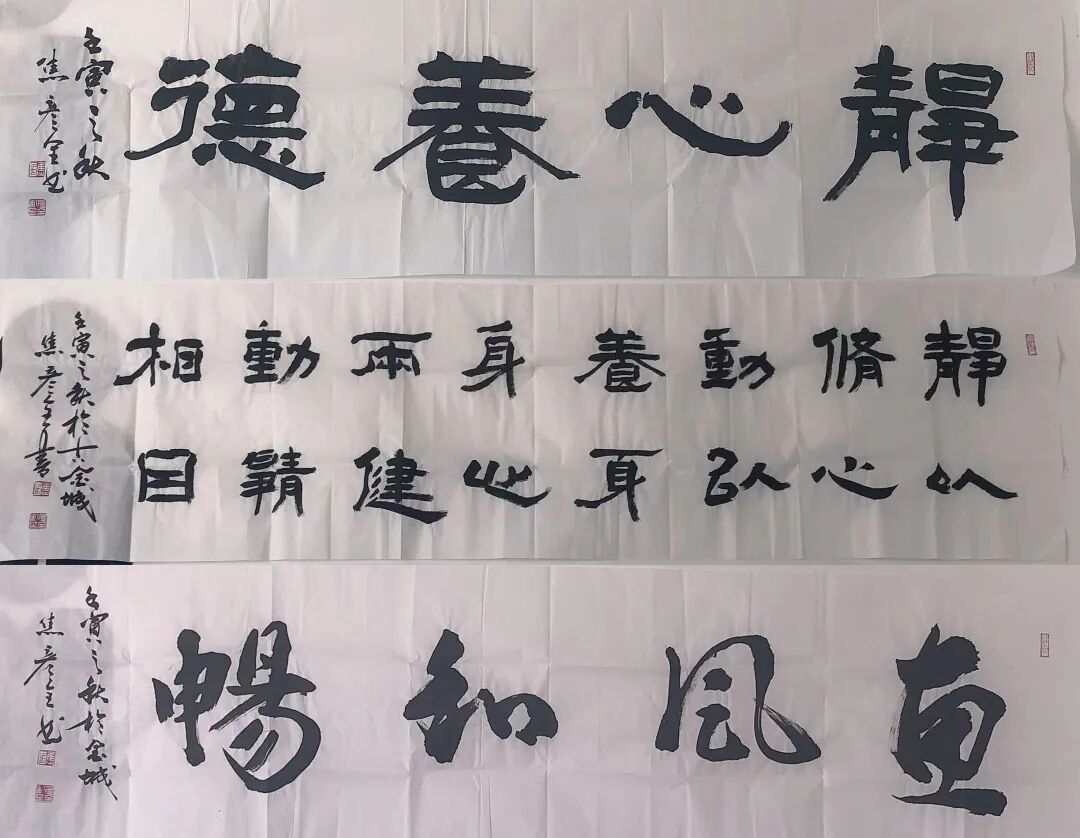 靜心養德
壬寅之秋
焦彦全书
靜以脩心動以養身身心兩健動靜相因
壬寅之秋於古金城
焦彦全書
惠風和暢
壬寅之秋於金城
焦彦全书